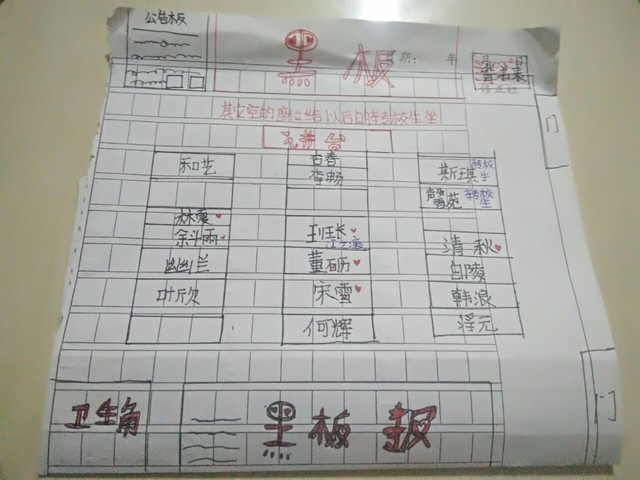 公告板
黑板
期: 年
其它空的座位给以后的转校生坐
讲台
和艺
古春
李畅
斯琪 转校生
馨苑 转校生
林霞
余斗雨
班长
清秋
幽兰
董石历
白陵
叶欣
宋雪
韩浪
何辉
将元
卫生角
黑板报